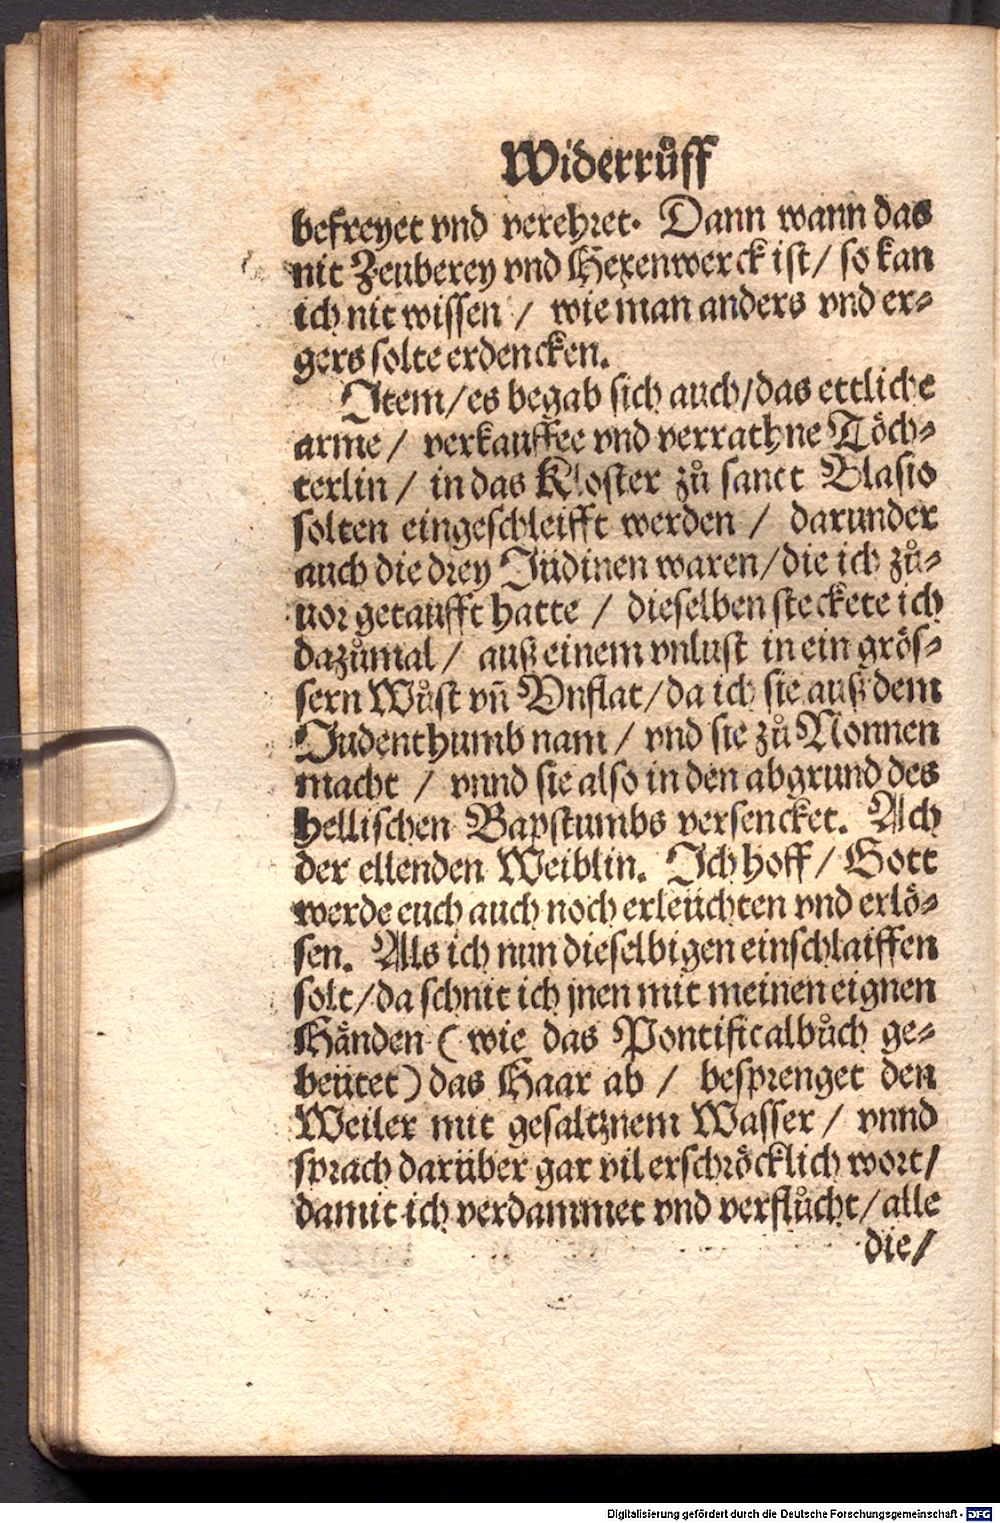 Widerrůff
befreyet vnd verehret. Dann wann das
nit Zeuberey vnd Hexenwerck ist/ so kan
ich nit wissen / wie man anders vnd er⸗
gers solte erdencken.
Item/es begab sich auch/das ettliche
arme / verkauffee vnd verrathne Töch⸗
terlin / in das Kloster zů sanct Blasio
solten eingeschleifft werden / darunder
auch die drey Jüdinen waren/die ich zů⸗
uor getaufft hatte / dieselben steckete ich
dazůmal / auß einem vnlust in ein grös⸗
sern Wůst vñ Vnflat/da ich sie auß dem
Judenthumb nam / vnd sie zů Nonnen
macht / vnnd sie also in den abgrund des
hellischen Bapstumbs versencket. Ach
der ellenden Weiblin. Ich hoff/ Gott
werde euch auch noch erleüchten vnd erlö⸗
sen. Als ich nun dieselbigen einschlaiffen
solt/da schnit ich jnen mit meinen eignen
Händen (wie das Pontificalbůch ge⸗
beütet) das Haar ab / besprenget den
Weiler mit gesaltznem Wasser/ vnnd
sprach darüber gar vil erschröcklich wort/
damit ich verdammet vnd verflůcht/alle
die/
Digitalisierung gefördert durch die Deutsche Forschungsgemeinschaft - DFG